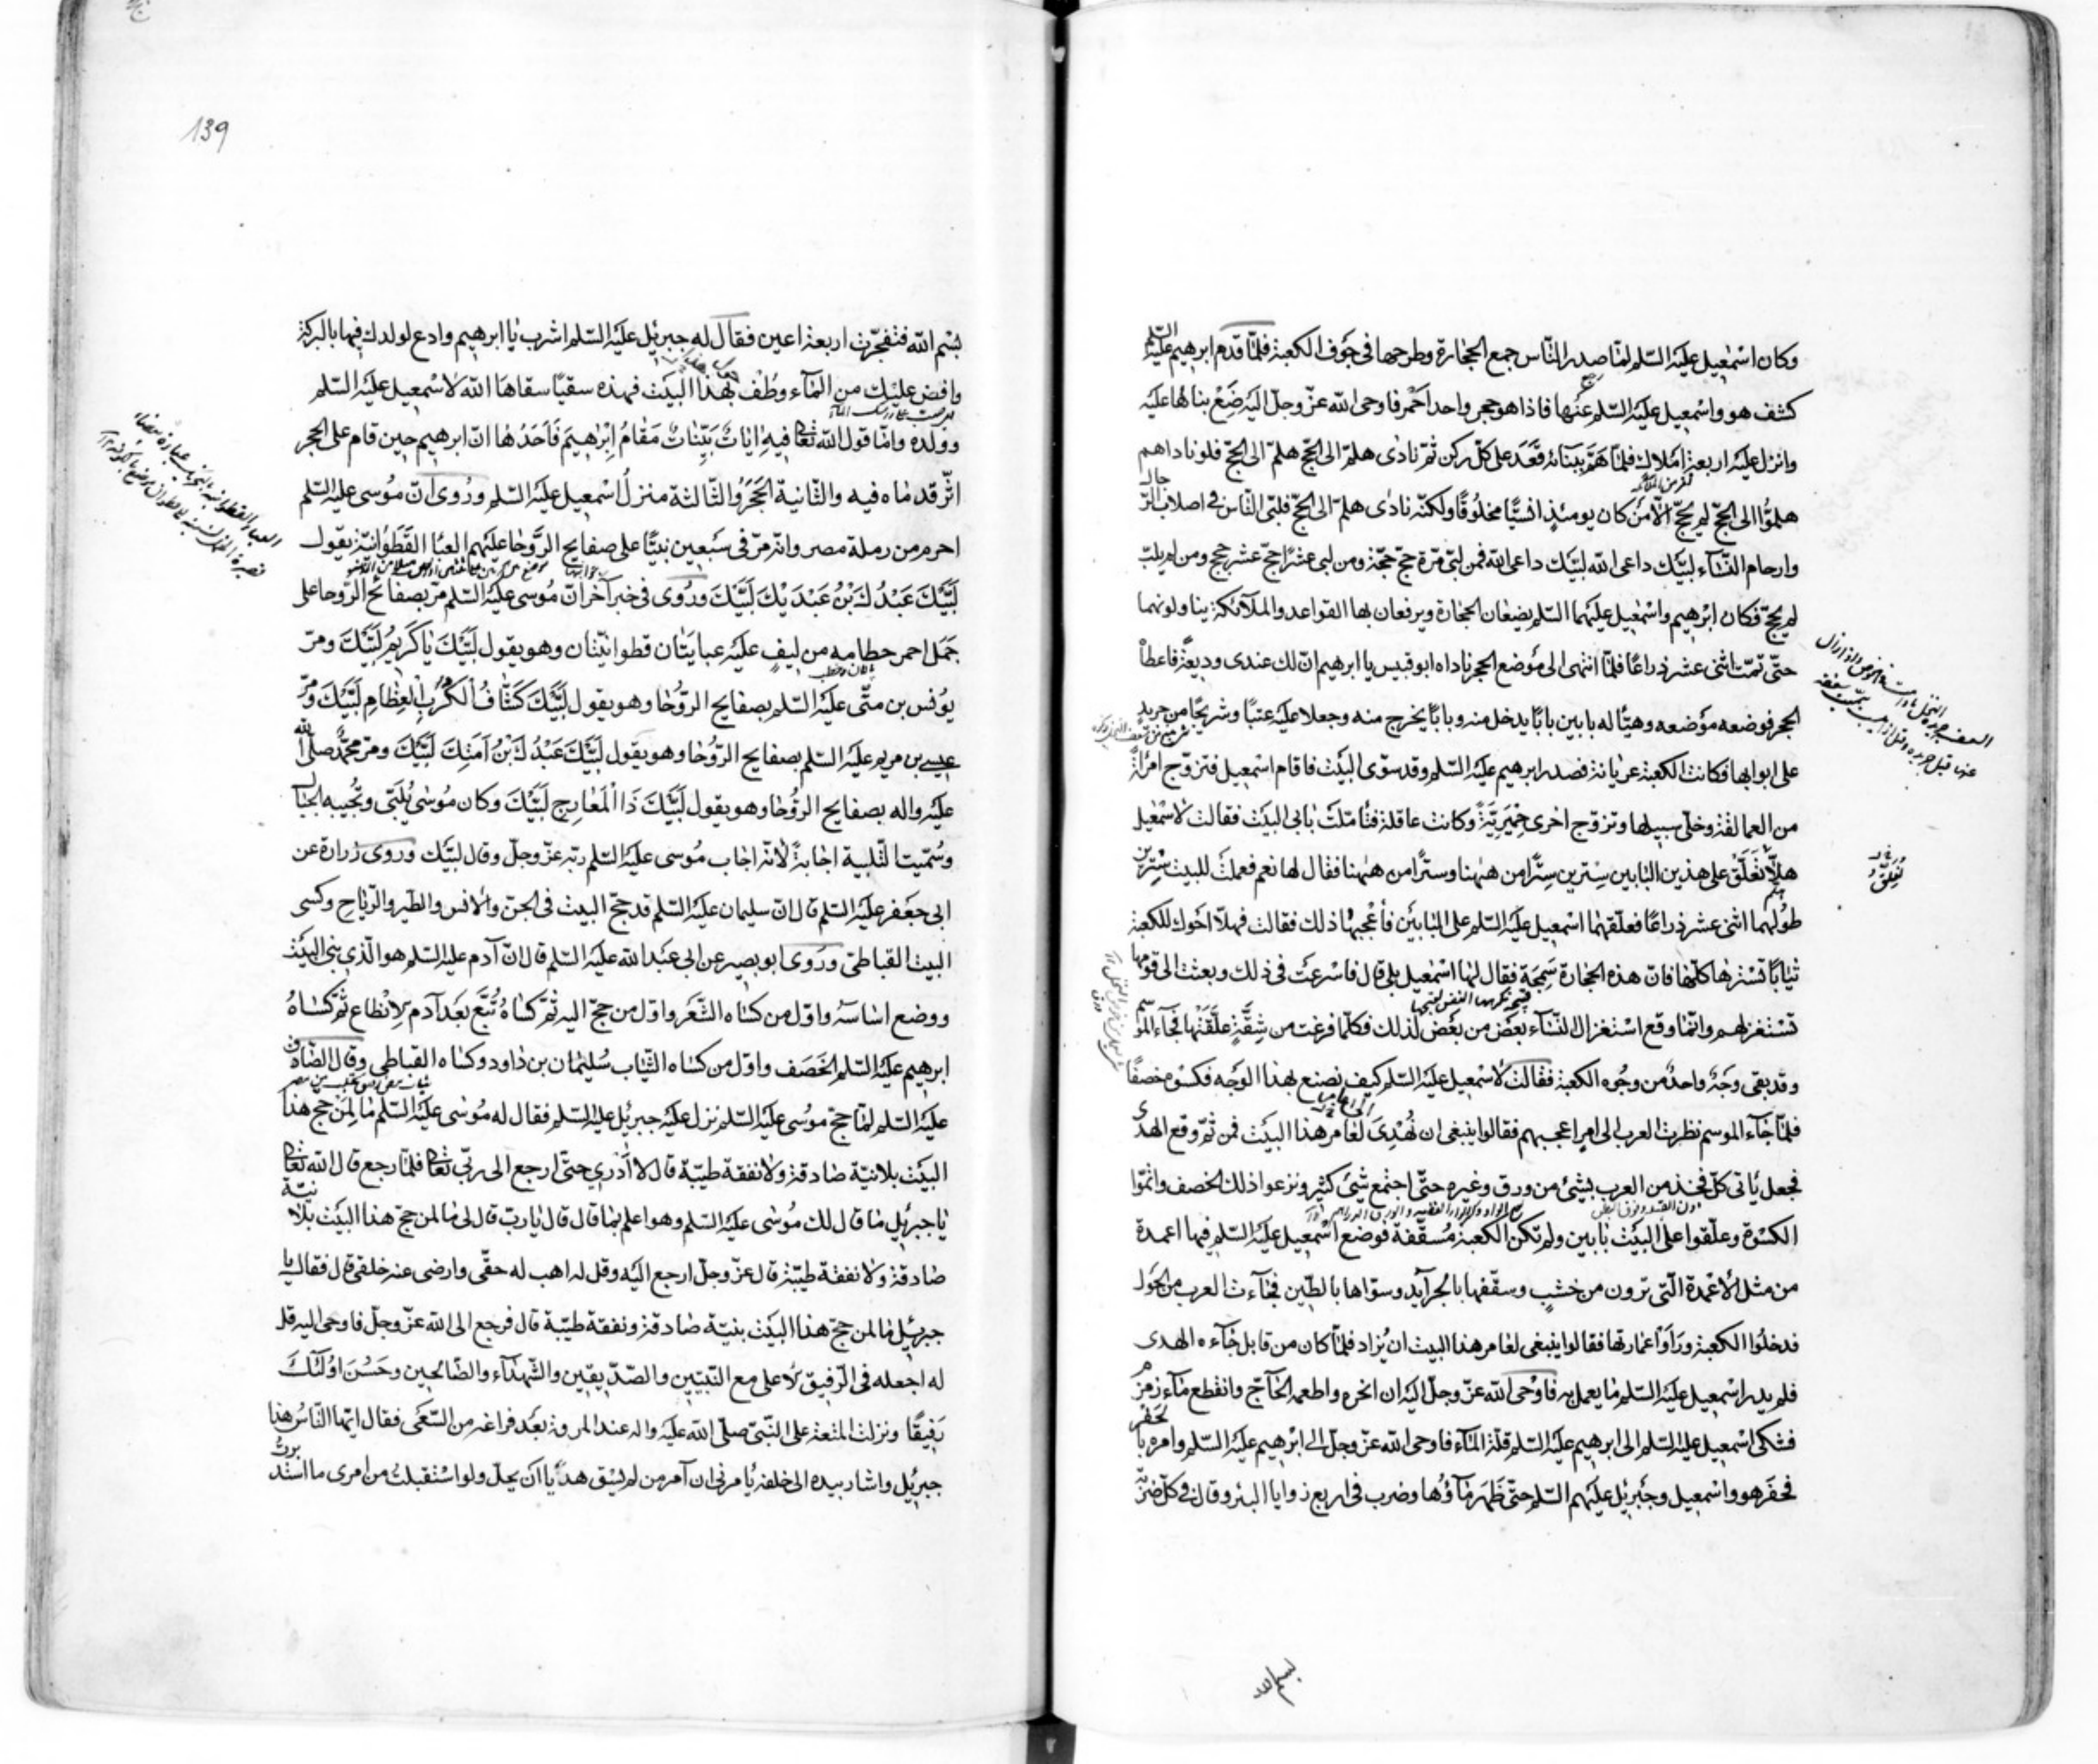 وكان اسمعيل عليه السلم لما صدر الناس جمع الحجارة وطرحها فى جوف الكعبة فلما قدم ابرهيم عليه السلم
كشف هو واسمعيل عليه السلم عنها فاذا هو حجر واحد احمر فاوحى الله عز وجل اليه ضع بناءها عليه
وانزل عليه اربعة املاك فلما هم ببنائه قعد على كل ركن ثم نادى هلم الى الحج هلم الى الحج فلو ناداهم
هلموا الى الحج لم يحج الا من كان يومئذ انسيا مخلوقا ولكنه نادى هلم الى الحج فلبى الناس فى اصلاب الرجال
وارحام النساء لبيك داعى الله لبيك داعى الله فمن لبى مرة حج حجة ومن لبى عشرا حج عشر حجج ومن لم يلب
لم يحج فكان ابرهيم واسمعيل عليهما السلم يضعان الحجارة ويرفعان بها القواعد والملآئكة يناولونهما
حتى تمت اثنى عشر ذراعا فلما انتهى الى موضع الحجر ناداه ابو قبيس يا ابرهيم ان لك عندى وديعة فاعطاه
الحجر فوضعه موضعه وهيأ له بابين بابا يدخل منه وبابا يخرج منه وجعلا عليه عتبا وشريجا من جريد
على ابوابها فكانت الكعبة عريانة فصدر ابرهيم عليه السلم وقد سوى البيت فاقام اسمعيل فتزوج امرأة
من العمالقة وخلى سبيلها وتزوج اخرى حميرية وكانت عاقلة فتأملت بابى البيت فقالت لاسمعيل
هلا تعلق على هذين البابين سترين سترا من ههنا وسترا من ههنا فقال لها نعم فعملت للبيت سترين
طولهما اثنى عشر ذراعا فعلقهما اسمعيل عليه السلم على البابين فاعجبها ذلك فقالت فهلا احوك للكعبة
ثيابا تسترها كلها فان هذه الحجارة سمجة فقال لها اسمعيل بلى قال فاسرعت فى ذلك وبعثت الى قومها
تستغزلهم وانما وقع استغزال النساء بعض من بعض لذلك فكلما فرغت من شقة علقتها فجاء الموسم
وقد بقى وجه واحد من وجوه الكعبة فقالت لاسمعيل عليه السلم كيف نصنع بهذا الوجه فكسوه خصفا
فلما جاء الموسم نظرت العرب الى امر اعجبهم فقالوا ينبغى ان نهدى لعامر هذا البيت فمن ثم وقع الهدى
فجعل يأتى كل فخذ من العرب بشئ من ورق وغيره حتى اجتمع شئ كثير ونزعوا ذلك الخصف واتموا
الكسوة وعلقوا على البيت بابين ولم تكن الكعبة مسقفة فوضع اسمعيل عليه السلم فيها اعمدة
من مثل الاعمدة التى ترون من خشب وسقفها بالجرآيد وسواها بالطين فجاءت العرب من الحول
فدخلوا الكعبة ورأوا عمارتها فقالوا ينبغى لعامر هذا البيت ان يزاد فلما كان من قابل جاءه الهدى
فلم يدر اسمعيل عليه السلم ما يعمل به فاوحى الله عز وجل اليه ان انحره واطعمه الحاج وانقطع ماء زمزم
فشكى اسمعيل عليه السلم الى ابرهيم عليه السلم قلة الماء فاوحى الله عز وجل الى ابرهيم عليه السلم وامره بالحفر
فحفر هو واسمعيل وجبرئيل عليهم السلم حتى ظهر ماؤها وضرب فى اربع زوايا البئر وقال فى كل ضربة
139
بسم الله فتفجرت اربعة اعين فقال له جبرئيل عليه السلم اشرب يا ابرهيم وادع لولدك فيها بالبركة
وافض عليك من الماء وطف بهذا البيت فهذه سقيا سقاها الله لاسمعيل عليه السلم
وولده واما قول الله تعالى فيه ايات بينات مقام ابرهيم فاحدها ان ابرهيم حين قام على الحجر
اثر قدماه فيه والثانية الحجر والثالثة منزل اسمعيل عليه السلم وروى ان موسى عليه السلم
احرم من رملة مصر وانه مر فى سبعين نبيا على صفايح الروحا عليهم العبا القطوانية يقول
لبيك عبدك بن عبديك لبيك وروى فى خبر آخر ان موسى عليه السلم مر بصفائح الروحا على
جمل احمر خطامه من ليف عليه عبايتان قطوانيتان وهو يقول لبيك يا كريم لبيك ومر
يونس بن متى عليه السلم بصفايح الروحا وهو يقول لبيك كشاف الكرب العظام لبيك ومر
عيسى بن مريم عليه السلم بصفايح الروحا وهو يقول لبيك عبدك بن امتك لبيك ومر محمد صلى الله
عليه واله بصفايح الروحا وهو يقول لبيك ذا المعارج لبيك وكان موسى يلبى وتجيبه الجبال
وسميت التلبية اجابة لانه اجاب موسى عليه السلم ربه عز وجل وقال لبيك وروى زرارة عن
ابى جعفر عليه السلم قال ان سليمان عليه السلم قد حج البيت فى الجن والانس والطير والرياح وكسى
البيت القباطى وروى ابو بصير عن ابى عبد الله عليه السلم قال ان آدم عليه السلم هو الذى بنى البيت
ووضع اساسه واول من كساه الشعر واول من حج اليه ثم كساه تبع بعد آدم الانطاع ثم كساه
ابرهيم عليه السلم الخصف واول من كساه الثياب سليمان بن داود وكساه القباطى وقال الصادق
عليه السلم لما حج موسى عليه السلم نزل عليه جبرئيل عليه السلم فقال له موسى عليه السلم ما لمن حج هذا
البيت بلانية صادقة ولا نفقة طيبة قال لا ادرى حتى ارجع الى ربى تعالى فلما رجع قال الله تعالى
يا جبرئيل ما قال لك موسى عليه السلم وهو اعلم بما قال قال يا رب قال لى ما لمن حج هذا البيت بلا نية
صادقة ولا نفقة طيبة قال عز وجل ارجع اليه وقل له اهب له حقى وارضى عنه خلقى قال فقال يا
جبرئيل ما لمن حج هذا البيت بنية صادقة ونفقة طيبة قال فرجع الى الله عز وجل فاوحى اليه قل
له اجعله فى الرفيق الاعلى مع النبيين والصديقين والشهدآء والصالحين وحسن اولئك
رفيقا ونزلت المتعة على النبى صلى الله عليه واله عند المروة بعد فراغه من السعى فقال ايها الناس هذا
جبرئيل واشار بيده الى خلفه يامرنى ان آمر من لم يسق هديا ان يحل ولو استقبلت من امرى ما استدبرت